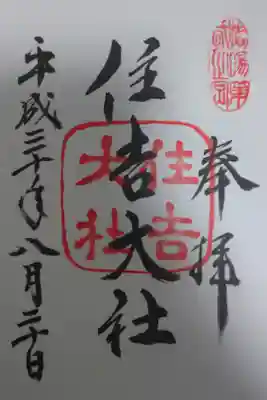 奉拝
住吉大社
住吉
大社
平成三十年八月二十日